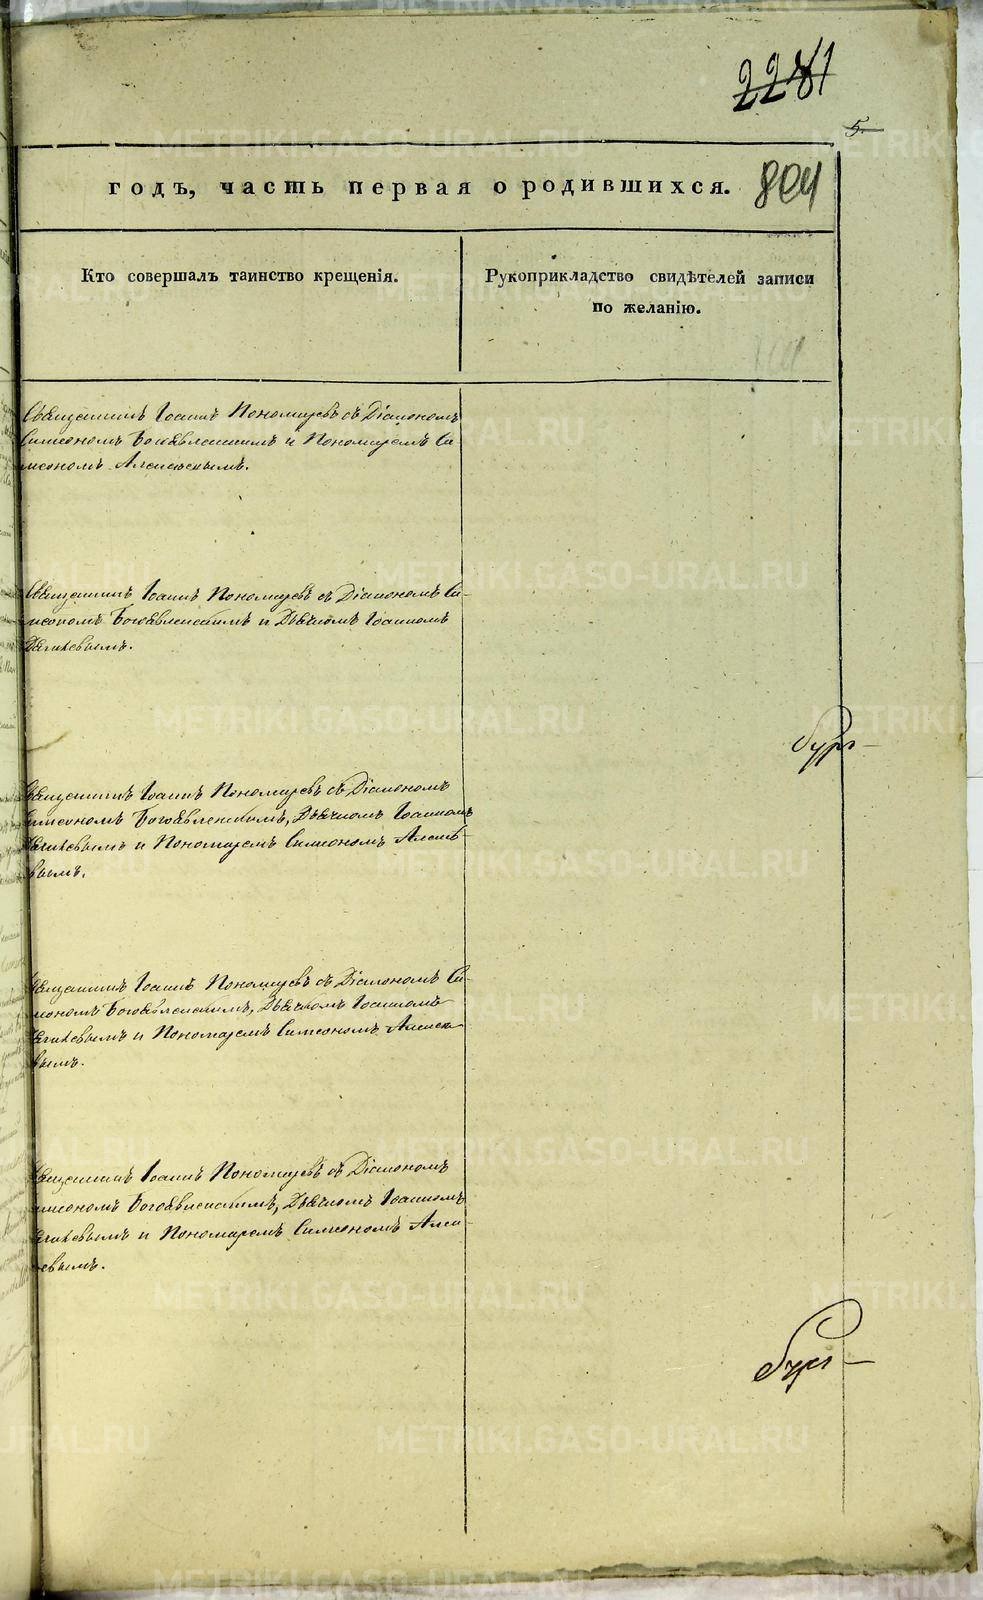 2281
5.
804
годъ, часть первая о родившихся.
Кто совершалъ таинство крещенія.
Рукоприкладство свидѣтелей записи
по желанію.
Священникъ Іоаннъ Пономаревъ съ Діакономъ
Симеономъ Богоявленскимъ и Пономаремъ Си-
меономъ
Священникъ Іоаннъ Пономаревъ съ Діакономъ Си-
меономъ Богоявленскимъ и Дьячкомъ Іоанномъ
Священникъ Іоаннъ Пономаревъ съ Діакономъ
Симеономъ Богоявленскимъ, Дьячкомъ Іоанномъ
и Пономаремъ Симеономъ
вымъ.
Священникъ Іоаннъ Пономаревъ съ Діакономъ Си-
меономъ Богоявленскимъ, Дьячкомъ Іоанномъ
и Пономаремъ Симеономъ
вымъ.
Священникъ Іоаннъ Пономаревъ съ Діакономъ
Симеономъ Богоявленскимъ, Дьячкомъ Іоанномъ
и Пономаремъ Симеономъ
евымъ.
METRIKI.GASO-URAL.RU